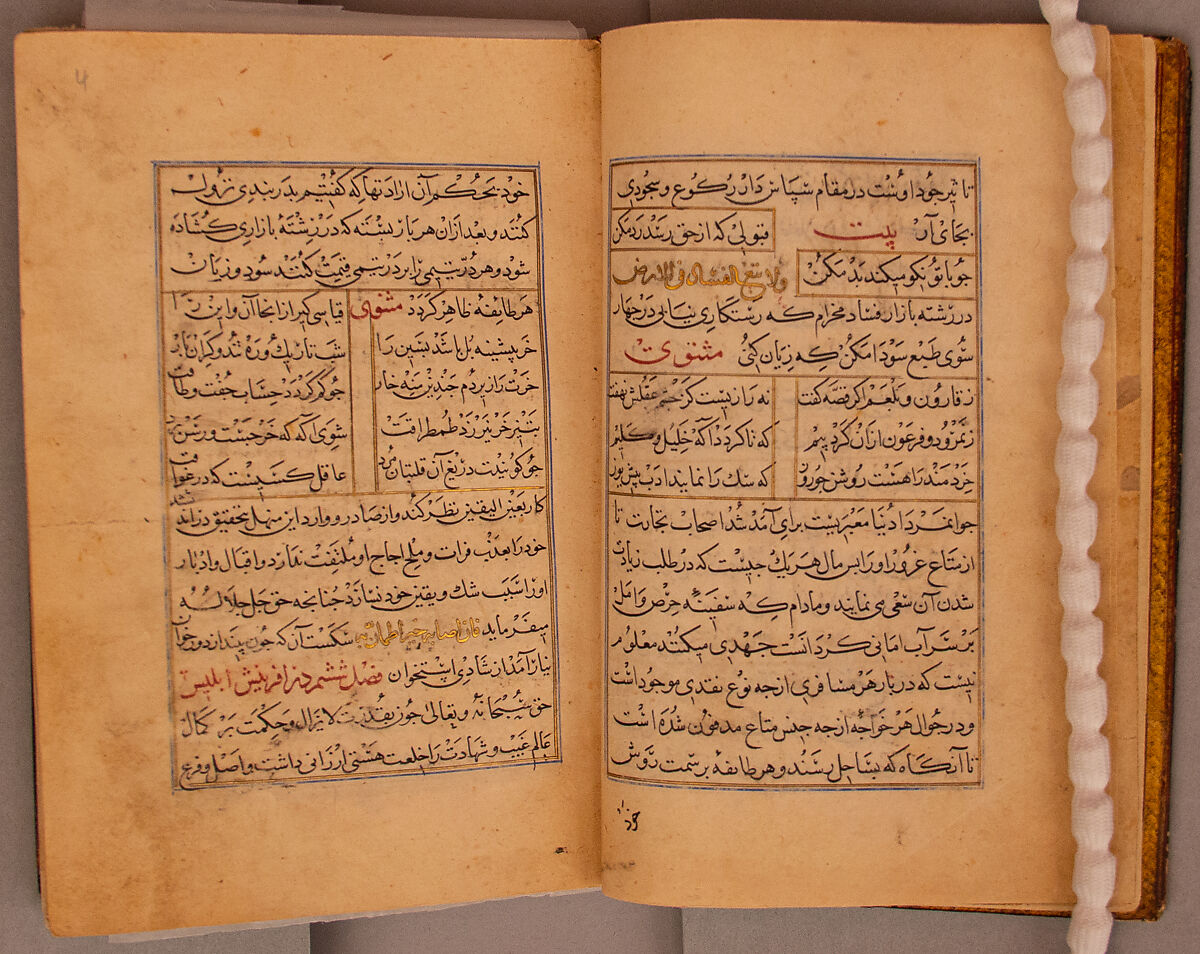 تاثیر جود اوست در مقام سپاس دار رکوع و سجودی
بجای آر بیت قبولی که از حق رسد رد مکن
چو با تو نکو میکند بد مکن ولا تبغ الفساد فی الارض
در رشته بازار فساد مخرام که رستکاری نیابی در چهار
سوی طمع سودا مکن که زیان کنی مثنوی
ز قارون و بلعم اکر قصه کفت نه رازیست کز چشم عقلش نهفت
ز نمرود و فرعون ازان کرد بیم که تا کردد آکه خلیل و کلیم
خردمند را هست روشن چو روز که سک را نمایند ادب پیش یوز
جوانمردا دنیا معبریست برای آمد شد اصحاب تجارت تا
از متاع غرور او راس مال هر یک چیست که در طلب زیادت
شدن آن سعی می نمایند و مادام که سفینه حرص و امل
بر سر آب امانی کردانست جهدی میکنند معلوم
نیست که در بار هر مسافری از چه نوع نقدی موجود است
و در جوال هر خواجه از چه جنس متاع مدفون شده است
تا آنکاه که بساحل رسند و هر طایفه بر سمت روش
خود
خود بحکم آن ارادتها که کفتیم بدر بندی نزول
کنند و بعد ازان هر بار بسته که در رشته بازاری کشاده
شود و هر در یتیمی را بر در قیمت کنند سود و زیان
هر طایفه ظاهر کردد مثنوی قیاسی کیر از اینجا آن و این را
خر پشینه بل باشد ببین را شب تاریک و ره تند و کران بار
خرت را زیر دم چندین سیخار چو کم کردد حساب جفت و طاقت
بتیز خر نیرزد طمطراقت شوی آکه که خر جست و رسن برد
چو کوبندت دریغ آن قلتبان مرد عاقل کسیست که در عواقب
کار بعین الیقین نظر کند و از صادر و وارد این منهل بتحقیق داند
خود را بعذب فرات و ملح اجاج او ملتفت ندارد و اقبال و ادبار
او را سبب شک و یقین خود نسازد چنانچه حق جل جلاله
میفرماید فان اصابه خیر اطمأن به سکست آن که چون پندارد و خوان
نیاز آمد از شادی استخوان فصل ششم در آفرینش ابلیس
حق سبحانه و تعالی چون بقدرت لا یزال و حکمت بر کمال
عالم غیب و شهادت را خلعت هستی ارزانی داشت و اصل و فرع